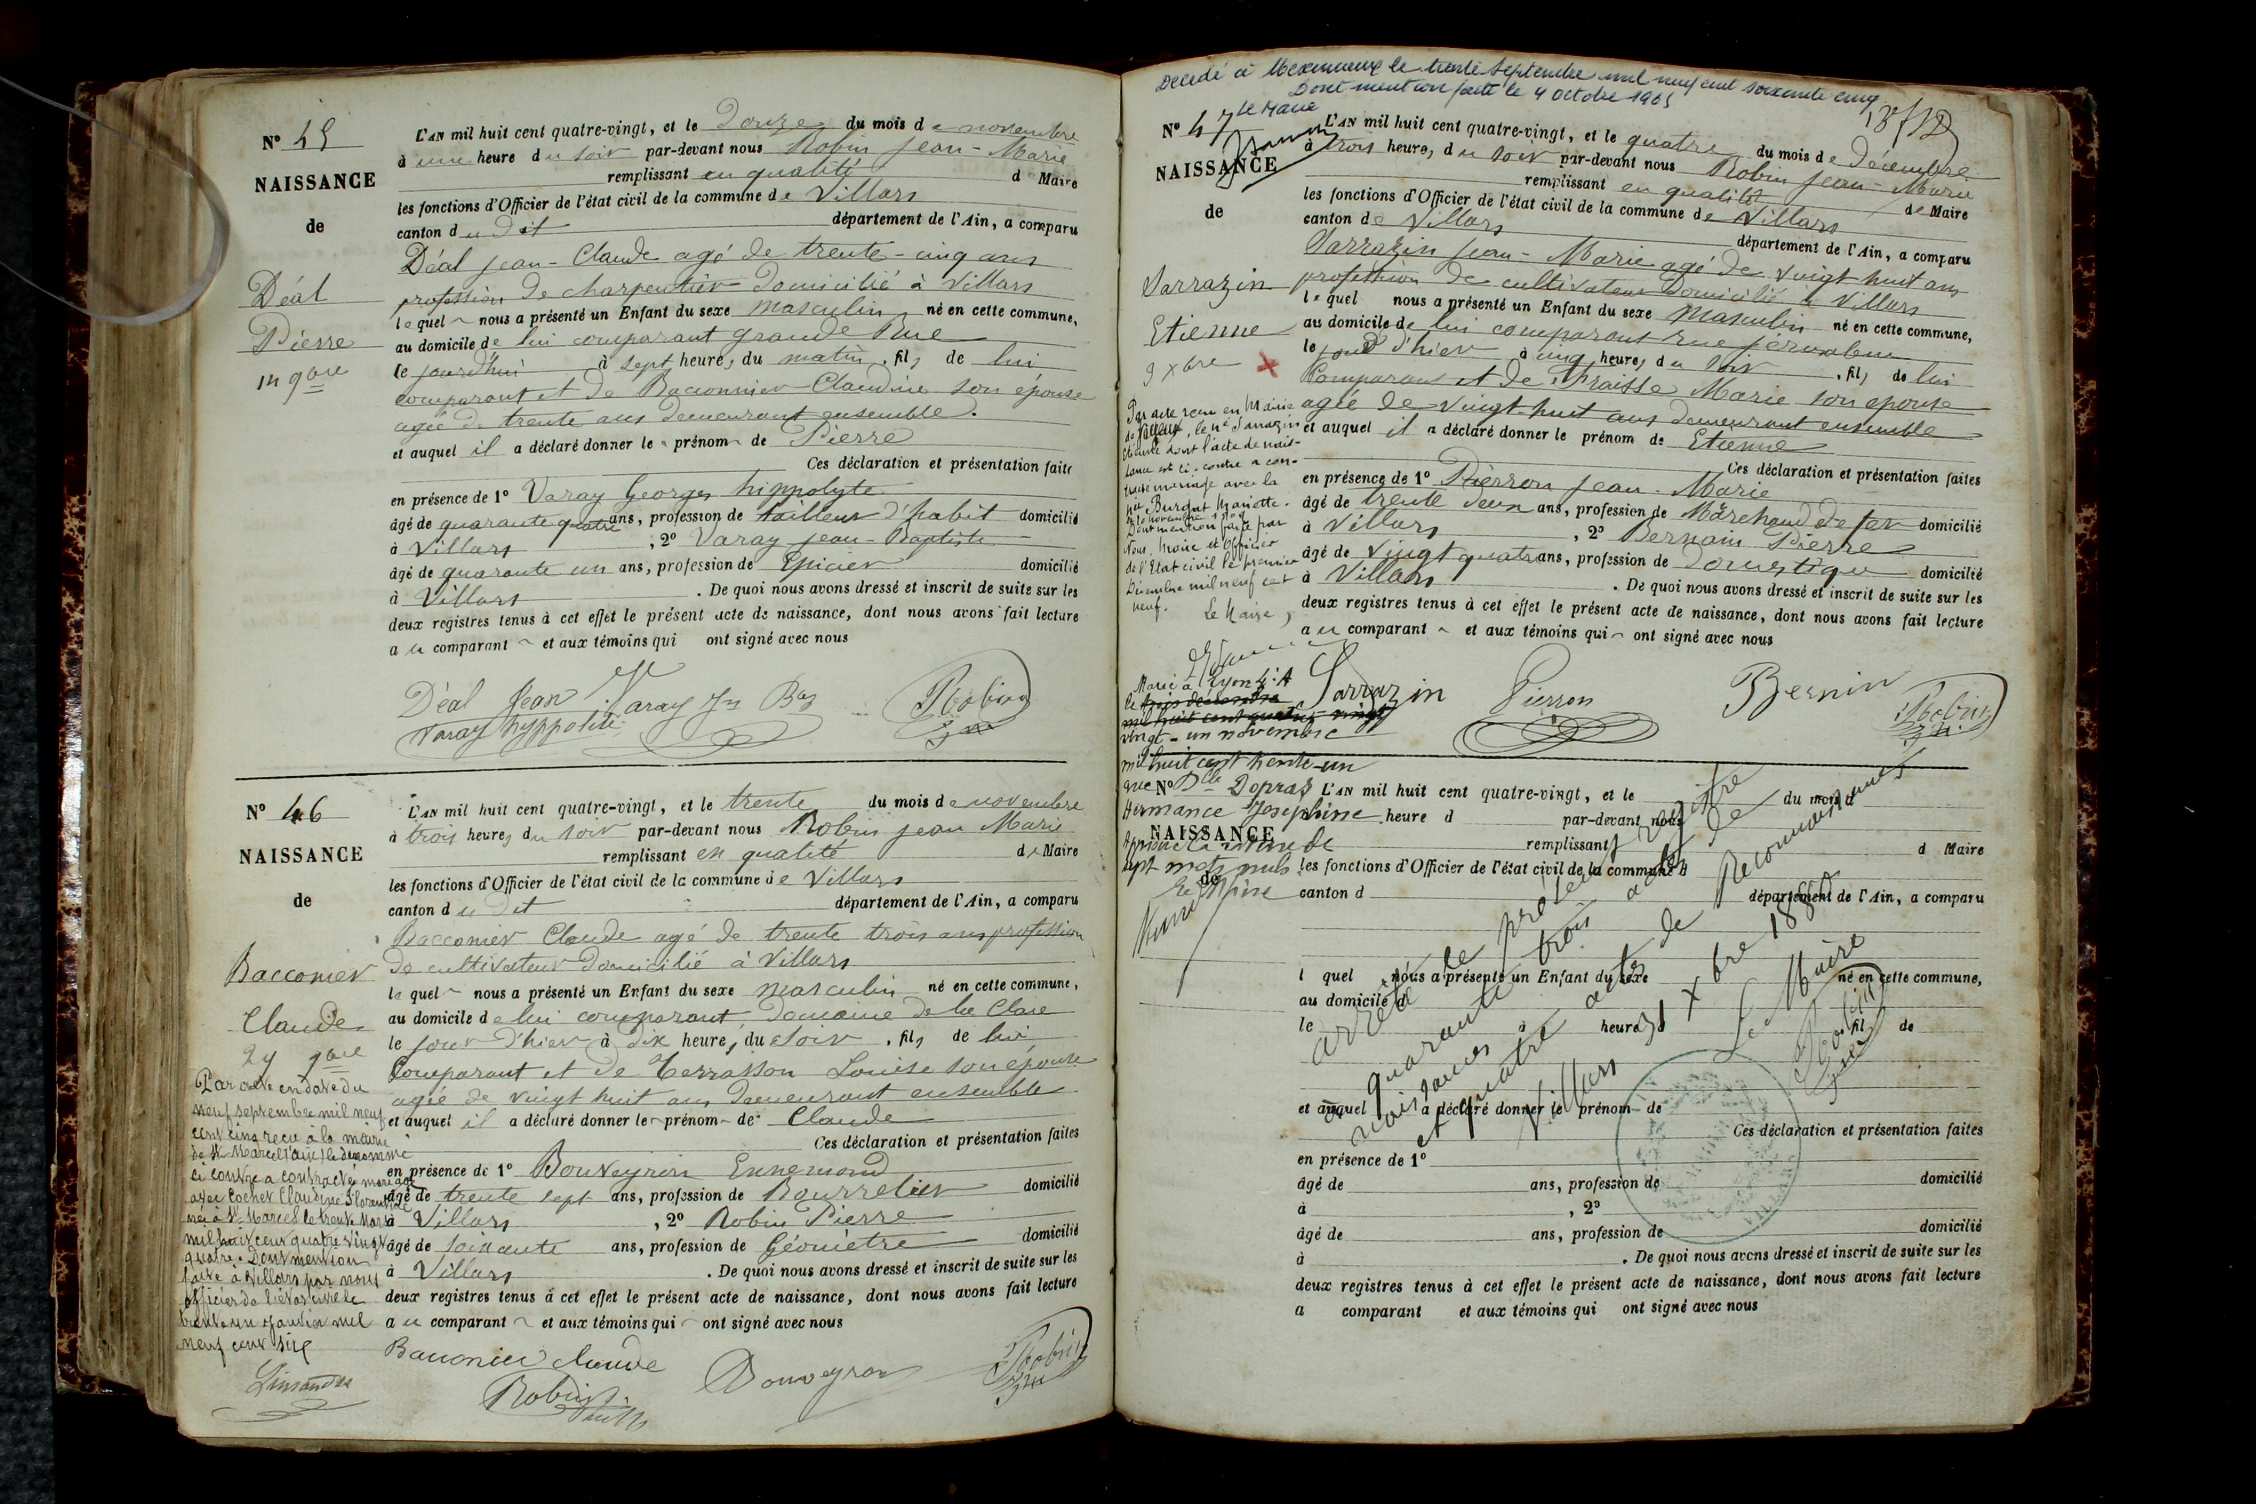 N° 45
NAISSANCE
de
Déal
Pierre
L'AN mil huit cent quatre-vingt, et le douze du mois de novembre
à une heure du soir par-devant nous Robin Jean-Marie
remplissant en qualité de Maire
les fonctions d'Officier de l'état civil de la commune de Villars
canton du dit département de l'Ain, a comparu
Déal Jean-Claude agé de trente-cinq ans
profession de charpentier domicilié à Villars
lequel nous a présenté un Enfant du sexe masculin né en cette commune,
au domicile de lui comparant grande Rue
le jourd'hui à sept heures du matin, fils de lui
comparant et de Baconnier Claudine son épouse
agée de trente ans demeurant ensemble.
et auquel il a déclaré donner le prénom de Pierre
Ces déclaration et présentation faites
en présence de 1° Varay Georges hippolyte
âgé de quarante quatre ans, profession de tailleur d'habit domicilié
à Villars, 2° Varay Jean-Baptiste
âgé de quarante un ans, profession de Epicier domicilié
à Villars. De quoi nous avons dressé et inscrit de suite sur les
deux registres tenus à cet effet le présent acte de naissance, dont nous avons fait lecture
au comparant et aux témoins qui ont signé avec nous
Déal Jean Varay Jn Bte Robin
Varay hyppolite
N° 46
NAISSANCE
de
Bacconier
Claude
29 9bre
Par acte en date du
neuf septembre mil neuf
cent cinq reçu à la mairie
de St Marcel (Ain) le dénommé
ci contre a contracté mariage
avec Cochet Claudine
née à St Marcel le trente Mars
mil huit cent quatre vingt
quatre. Dont mention
faite à Villars par nous
officier de l'état civil le
trente un Janvier mil
neuf cent six
L'AN mil huit cent quatre-vingt, et le trente du mois de novembre
à trois heures du soir par-devant nous Robin Jean Marie
remplissant en qualité de Maire
les fonctions d'Officier de l'état civil de la commune de Villars
canton du dit département de l'Ain, a comparu
Bacconier Claude agé de trente trois ans profession
de cultivateur domicilié à Villars
lequel nous a présenté un Enfant du sexe masculin né en cette commune,
au domicile de lui comparant Domaine de la Clare
le jour d'hier à dix heures du soir, fils de lui
Comparant et de Terrasson Louise son épouse
agée de vingt huit ans demeurant ensemble
et auquel il a déclaré donner le prénom de Claude
Ces déclaration et présentation faites
en présence de 1° Bouveyron Ennemond
âgé de trente sept ans, profession de Bourrelier domicilié
à Villars, 2° Robin Pierre
âgé de soixante ans, profession de Géomètre domicilié
à Villars. De quoi nous avons dressé et inscrit de suite sur les
deux registres tenus à cet effet le présent acte de naissance, dont nous avons fait lecture
au comparant et aux témoins qui ont signé avec nous
Baconier claude Bouveyron Robin
Robin
Décédé à Meximieux le trente Septembre mil neuf cent soixante cinq
Dont mention faite le 4 octobre 1965
Le Maire
N° 47
NAISSANCE
de
Sarrazin
Etienne
3 Xbre
Par acte reçu en Mairie
de Villars, le né Sarrazin
Etienne dont l'acte de nais-
sance est ci-contre a con-
tracté mariage avec la
née Burdat Mariette
Dont mention faite par
Nous, Maire et Officier
de l'Etat civil le premier
Décembre mil neuf cent
neuf.
Le Maire,
Marié à Lyon 4e A
le trois décembre
mil huit cent quatre vingt
vingt-un novembre
mil huit cent trente-un
Dlle Dopraz
Hermance Joséphine
sept mots nuls
Le Maire
L'AN mil huit cent quatre-vingt, et le quatre du mois de Décembre
à trois heures, du soir par-devant nous Robin Jean-Marie
remplissant en qualité de Maire
les fonctions d'Officier de l'état civil de la commune de Villars
canton de Villars département de l'Ain, a comparu
Sarrazin Jean-Marie agé de vingt huit ans
profession de cultivateur domicilié à Villars
lequel nous a présenté un Enfant du sexe masculin né en cette commune,
au domicile de lui comparant rue Jérusalem
le jour d'hier à cinq heures du soir, fils de lui
Comparant et de Fraisse Marie son épouse
agée de vingt-huit ans demeurant ensemble
et auquel il a déclaré donner le prénom de Etienne
Ces déclaration et présentation faites
en présence de 1° Pierron Jean-Marie
âgé de trente deux ans, profession de Marchand de fer domicilié
à Villars, 2° Bernain Pierre
âgé de vingt quatre ans, profession de Domestique domicilié
à Villars. De quoi nous avons dressé et inscrit de suite sur les
deux registres tenus à cet effet le présent acte de naissance, dont nous avons fait lecture
au comparant et aux témoins qui ont signé avec nous
Sarrazin Pierron Bernin Robin
N°
NAISSANCE
de
L'AN mil huit cent quatre-vingt, et le du mois d
heure d par-devant nous
remplissant d Maire
les fonctions d'Officier de l'état civil de la commune d
canton d département de l'Ain, a comparu
l quel nous a présenté un Enfant du sexe né en cette commune,
au domicile d
le à heure d fil de
et auquel a déclaré donner le prénom de
Ces déclaration et présentation faites
en présence de 1°
âgé de ans, profession de domicilié
à , 2°
âgé de ans, profession de domicilié
à . De quoi nous avons dressé et inscrit de suite sur les
deux registres tenus à cet effet le présent acte de naissance, dont nous avons fait lecture
a comparant et aux témoins qui ont signé avec nous
arrêté le présent registre
à quarante trois actes de
naissances et quatre actes de Reconnaissances
Villars 31 Xbre 1880
Le Maire
Robin